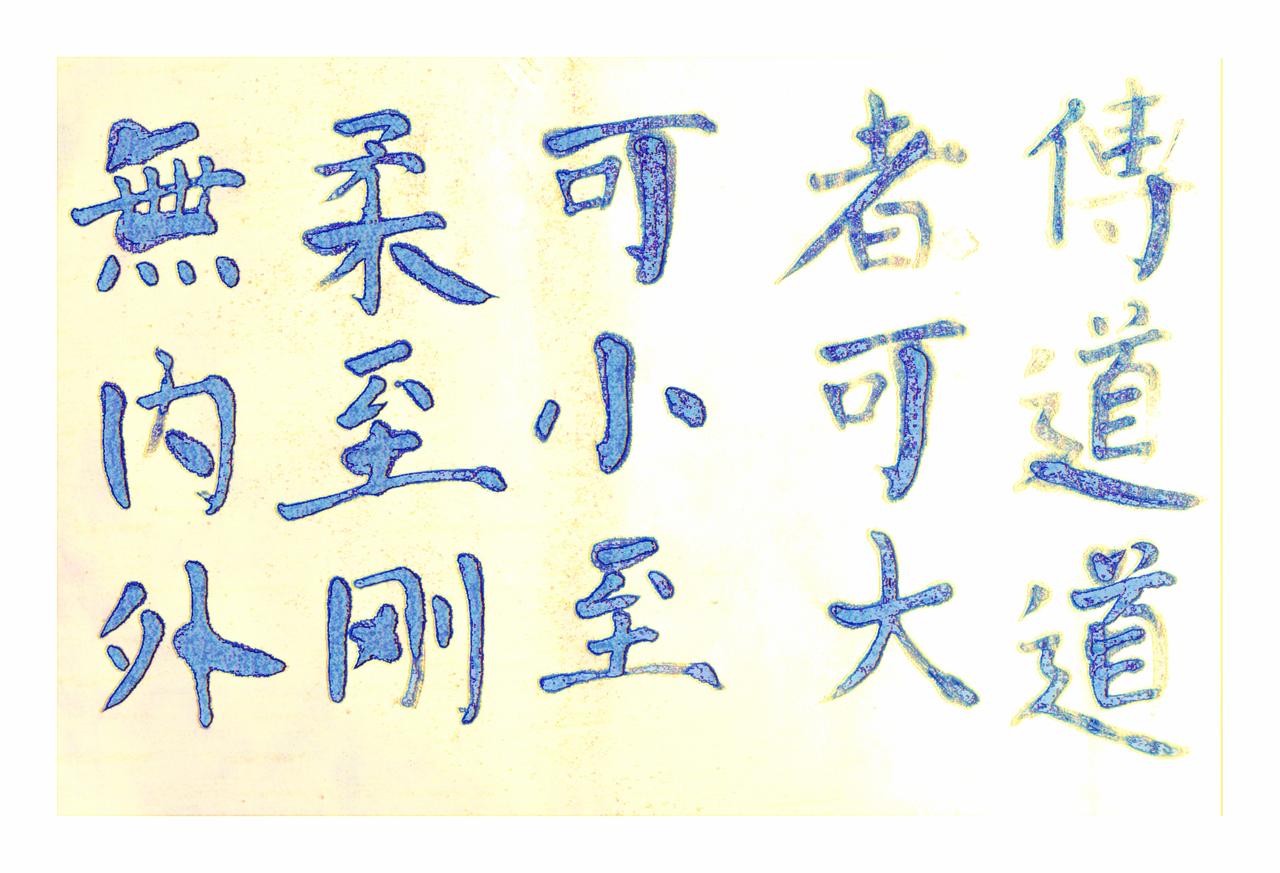 傳道道
者可大
可小至
柔至剛
無內外